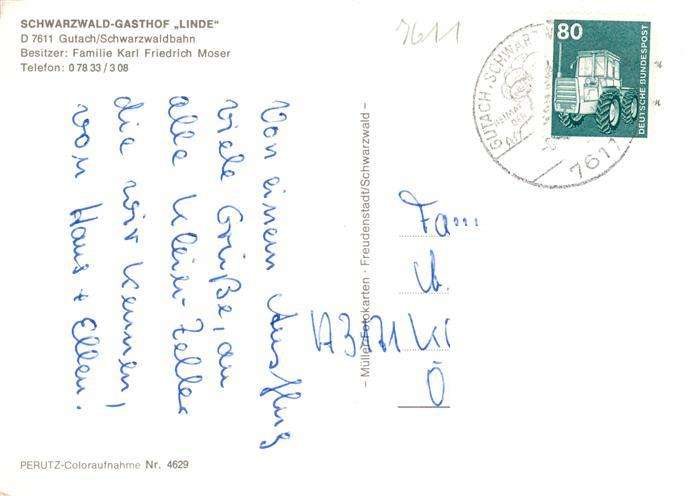 SCHWARZWALD-GASTHOF „LINDE"
D 7611 Gutach/Schwarzwaldbahn
Besitzer: Familie Karl Friedrich Moser
Telefon: 0 78 33 / 3 08
7611
80
DEUTSCHE BUNDESPOST
GUTACH, SCHWARZW
7611
Von einem Ausflug
viele Grüße, an
alle Klein-Zeller
die wir kennen,
von Haus + Ellen.
– Müller Fotokarten · Freudenstadt/Schwarzwald –
Fam
A 3171 Kl
Ö
PERUTZ-Coloraufnahme Nr. 4629